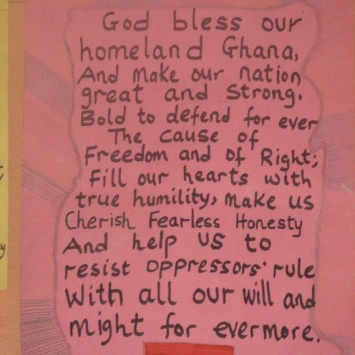 God bless our
homeland Ghana,
And make our nation
great and strong.
Bold to defend for ever
The cause of
Freedom and of Right;
Fill our hearts with
true humility, make us
Cherish Fearless Honesty
And help us to
resist oppressors' rule
With all our will and
might for evermore.